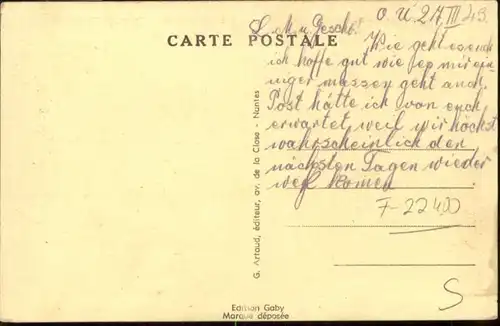 O. U. 27 III 43.
L. M. u. Geschb!
CARTE POSTALE
Wie geht es euch
ich hoffe gut wie es mir ein
niger massen geht auch.
Post hätte ich von euch
erwartet weil wir höchst
wahrscheinlich den
nächsten Tagen wieder
weg komen
F-22400
S
G. Artaud, éditeur, av. de la Close - Nantes
Edition Gaby
Marque déposée